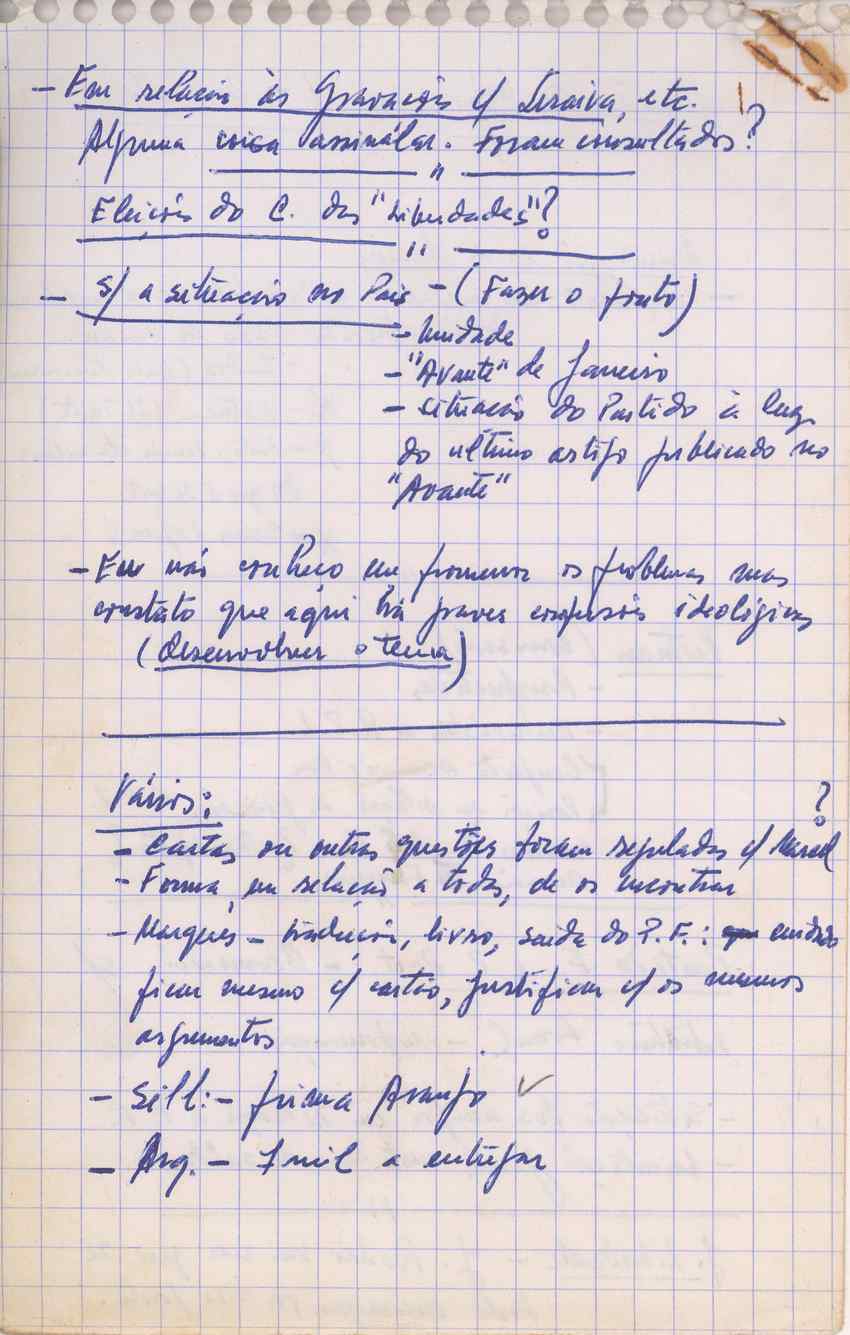 - Em relação às Gravações c/ Saraiva, etc.
Alguma coisa assinalar. Foram consultados?
"
Eleições do C. das "Liberdades"?
"
- s/ a situação no País - (Fazer o ponto)
- Unidade
- "Avante" de Janeiro
- situação do Partido à luz
do último artigo publicado no
"Avante"
- Eu não conheço em pormenor os problemas mas
constato que aqui há graves confusões ideológicas
(Desenvolver o tema)
Vários:
- Cartas ou outras questões foram reguladas c/ Marcel ?
- Forma, em relação a todos, de os encontrar
- Marquês - tradução, livro, saída do P. F.:
ficar mesmo c/ cartão, justificar c/ os mesmos
argumentos
- Sill: - prima Araújo ✓
- Arg. - 1 mil a entregar